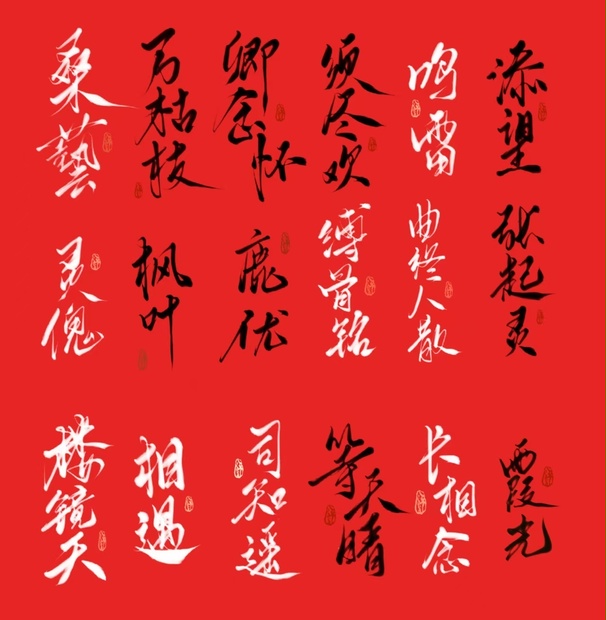 桑藝
弓枯枝
卿念怀
须尽欢
鸣雷
添望
灵傀
枫叶
鹿优
缚骨铭
曲终人散
张起灵
楼镜天
相遇
司知遥
等天晴
长相念
西霞光